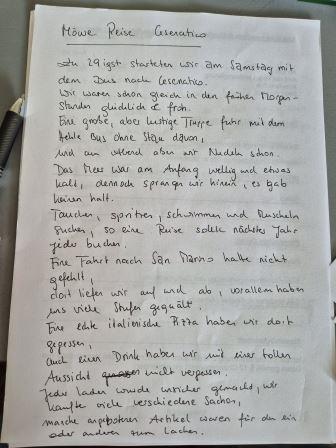 Möwe Reise Cesenatico
Zu 29igst starteten wir am Samstag mit
dem Bus nach Cesenatico.
Wir waren schon gleich in den frühen Morgen-
stunden glücklich & froh.
Eine große, aber lustige Truppe fuhr mit dem
Bus ohne Stau davon,
und am Abend aßen wir Nudeln schon.
Das Meer war am Anfang wellig und etwas
kalt, dennoch sprangen wir hinein, es gab
keinen halt.
Tauchen, spritzen, schwimmen und Muscheln
suchen, so eine Reise sollte nächstes Jahr
jeder buchen.
Eine Fahrt nach San Marino hatte nicht
gefehlt,
dort liefen wir auf und ab, vorallem haben
uns viele Stufen gequält.
Eine echte italienische Pizza haben wir dort
gegessen,
auch einen Drink haben wir mit einer tollen
Aussicht nicht vergessen.
Jeder Laden wurde unsicher gemacht, wir
kauften viele verschiedene Sachen,
manche angebotenen Artikel waren für den ein
oder anderen zum Lachen.